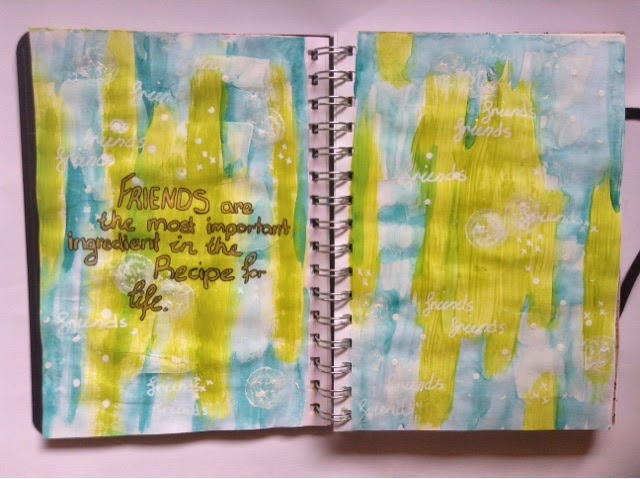 friends
friends
friends
FRIENDS are
the most important
ingredient in the
Recipe for
life.
friends
friends
friends
friends
friends
friends
friends
friends
friends
friends
friends